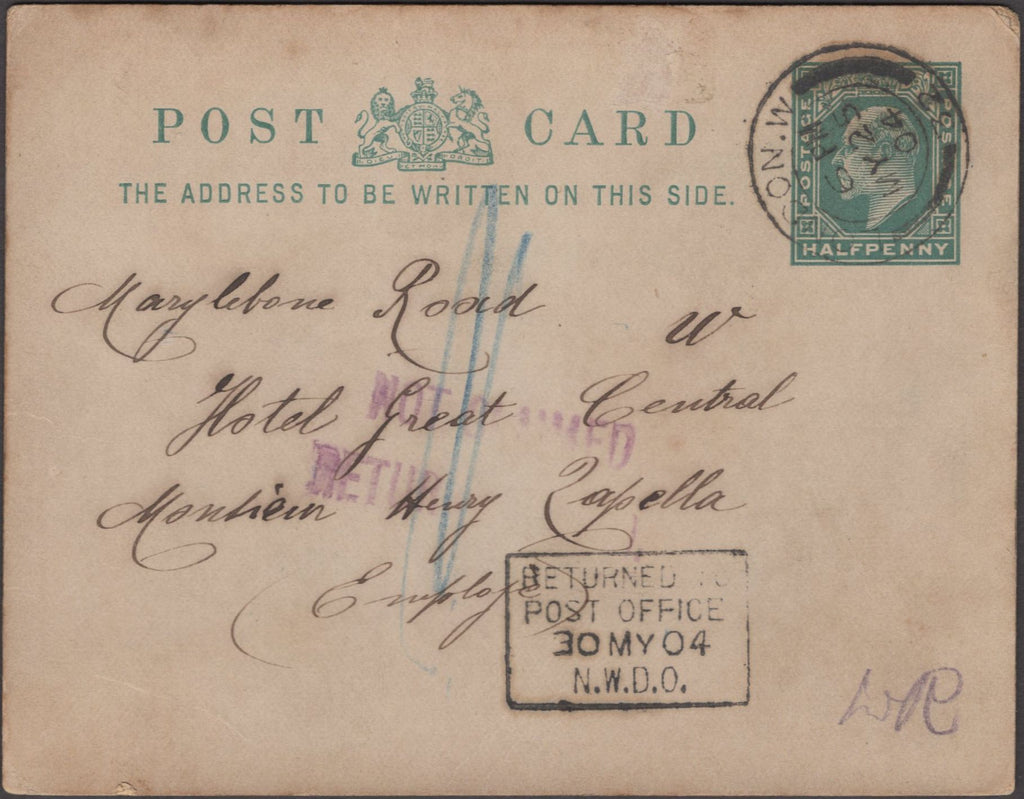 POST CARD
THE ADDRESS TO BE WRITTEN ON THIS SIDE.
POSTAGE
HALFPENNY
MY 5
04
Marylebone Road W
Hotel Great Central
NOT CLAIMED
RETURN
Monsieur Henry Zapella
Employé
RETURNED TO
POST OFFICE
30 MY 04
N.W.D.O.
WR